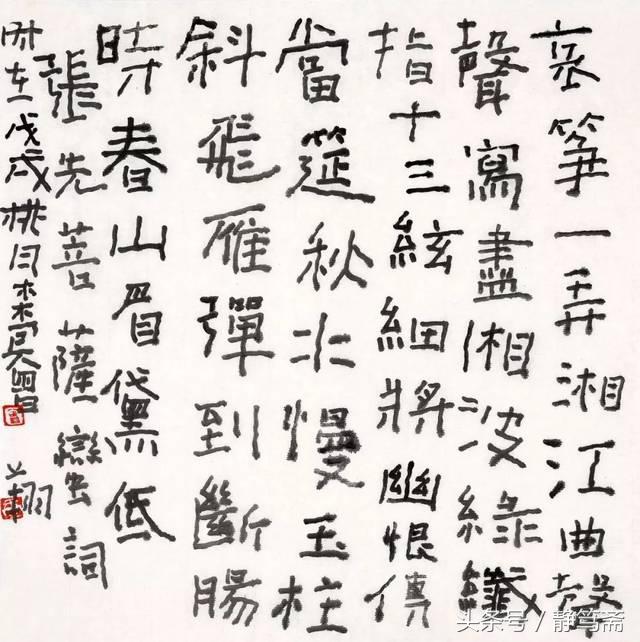 哀箏一弄湘江曲聲
聲寫盡湘波綠纖
指十三絃細將幽恨傳
當筵秋水慢玉柱
斜飛雁彈到斷腸
時春山眉黛低
張先菩薩蠻詞
时在戊戌桃月
头条号 / 静笃斋